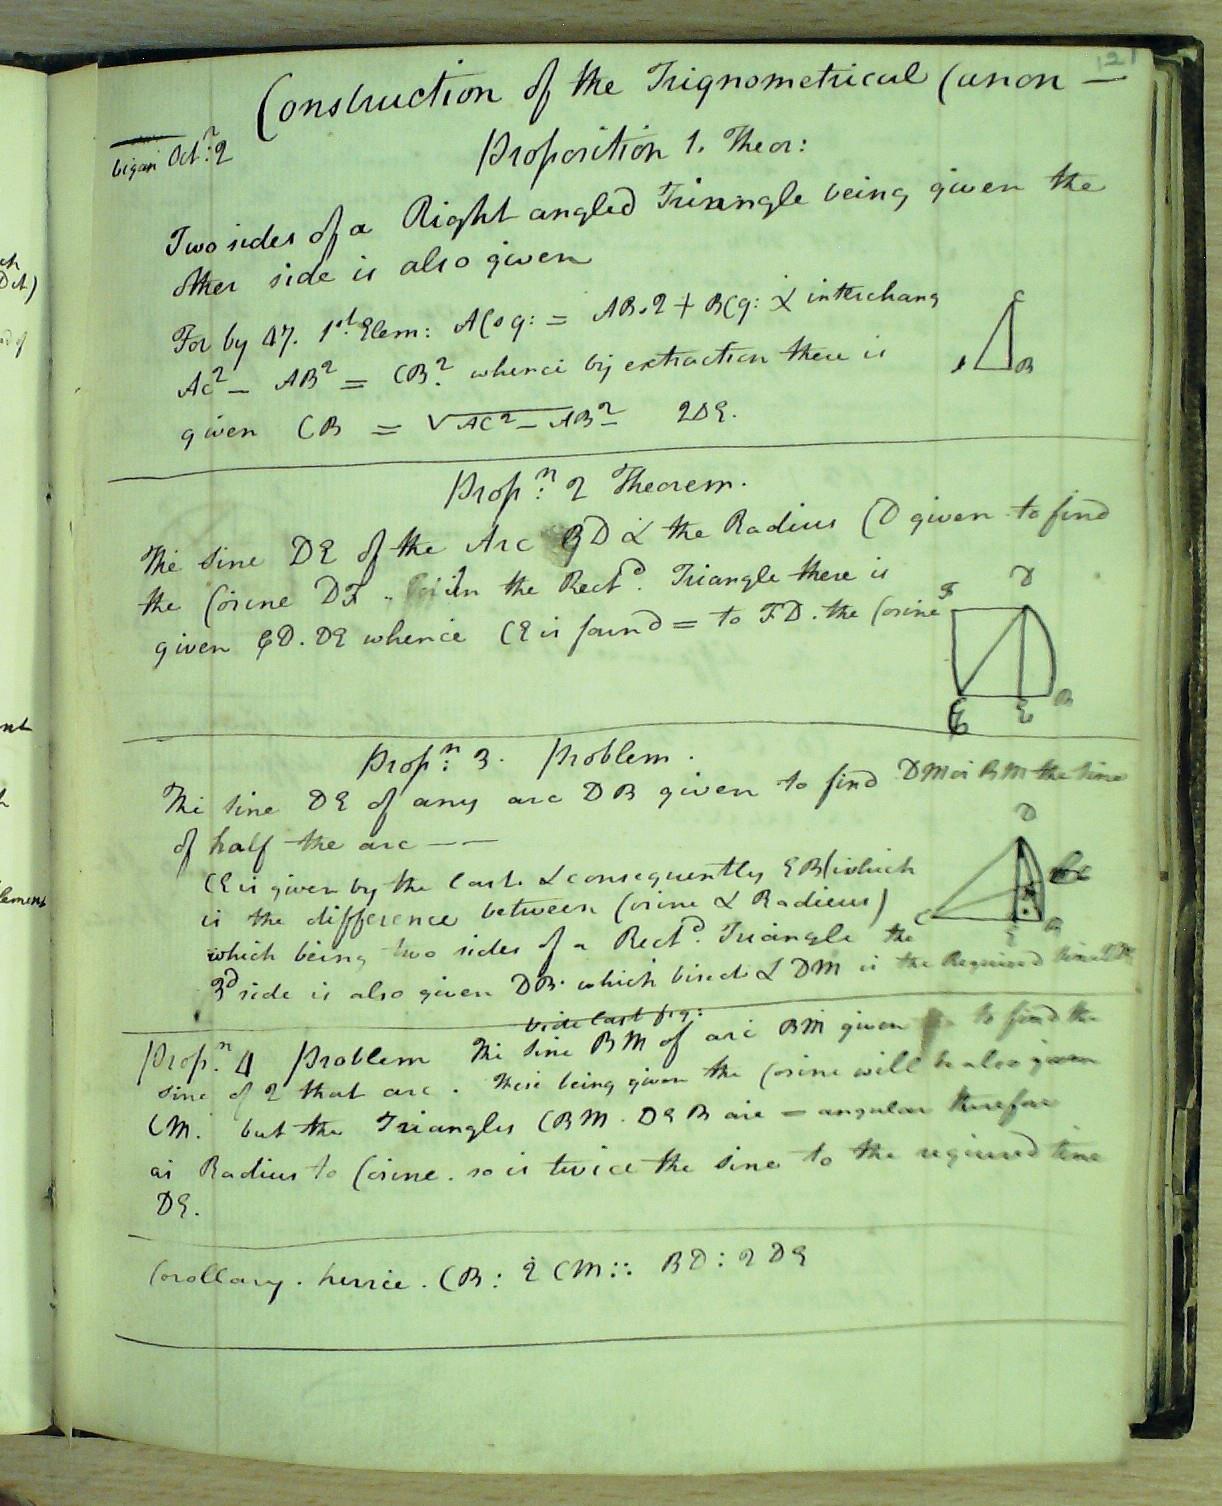 121
Construction of the Trignometrical Canon —
began Octr: 2
Proposition 1. Theor:
Two sides of a Right angled Triangle being given the
other side is also given
For by 47. 1st Elem: ACsq: = AB.2 + BCq: & interchang
AC2 — AB2 = CB2. whence by extraction there is
given CB = √AC2 — AB2 — 2DE.
C
A B
Propn: 2 Theorem.
The sine DE of the Arc BD & the Radius CD given to find
the Cosine DF .. in the Rectd. Triangle there is
given CD. DE whence CE is found = to FD. the Cosine
F D
C E B
Propn: 3. Problem.
The sine DE of any arc DB given to find DM or BM the sine
of half the arc — —
CE is given by the last. & consequently EB (which
is the difference between Cosine & Radius)
which being two sides of a Rectd. Triangle the
3d side is also given DB. which bisect & DM is the Required sine
D
C E B
vide last fig:
Propn. 4 Problem The sine BM of arc BM given to find the
sine of 2 that arc. These being given the Cosine will be also given
CM. but the Triangles CBM. DEB are = angular therefore
as Radius to Cosine. so is twice the sine to the required sine
DE.
Corollary. hence. CB: 2 CM:: BD: 2 DE